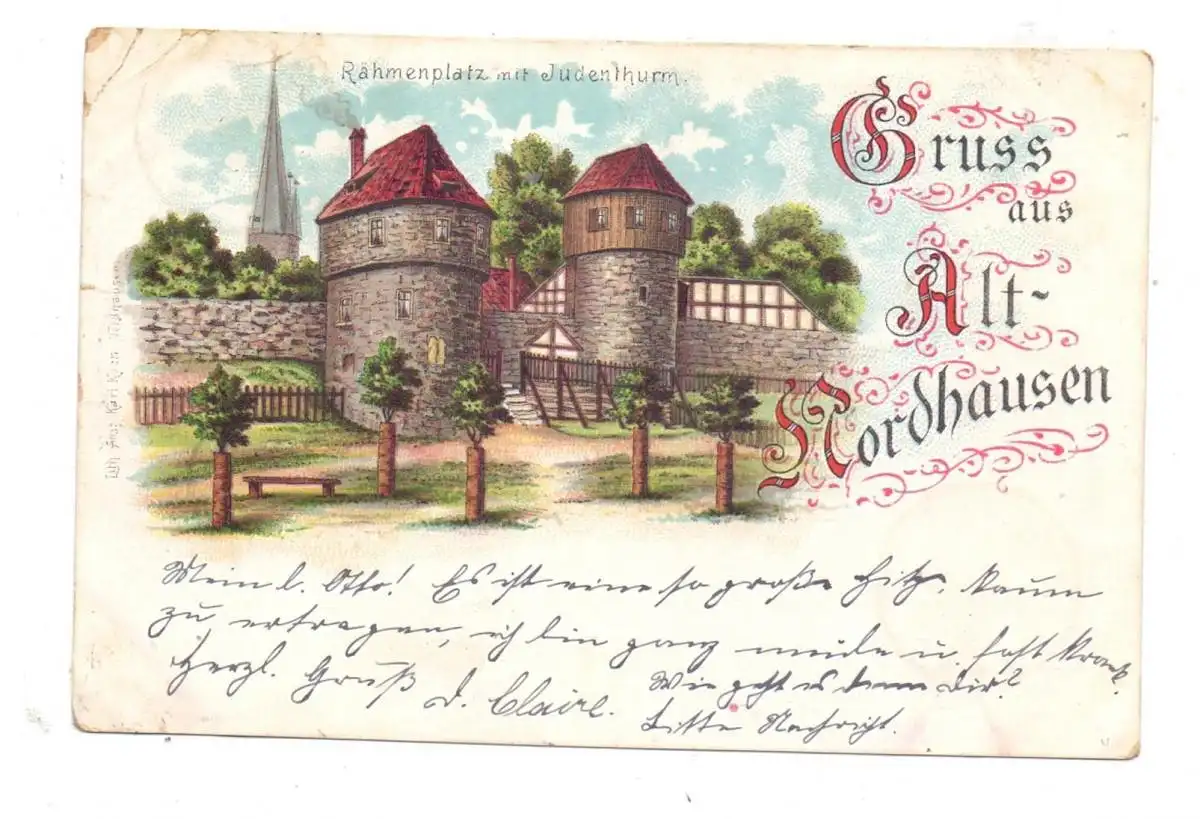 Rähmenplatz mit Judenthurm.
Gruss
aus
Alt-
Nordhausen
Mein l. Otto! Es ist eine so große Hitze, kaum
zu ertragen, ich bin ganz müde u. fast krank.
Herzl. Gruß d. Claire.
Wie geht es denn Dir?
Bitte Nachricht.
Karl Koch Nordhausen